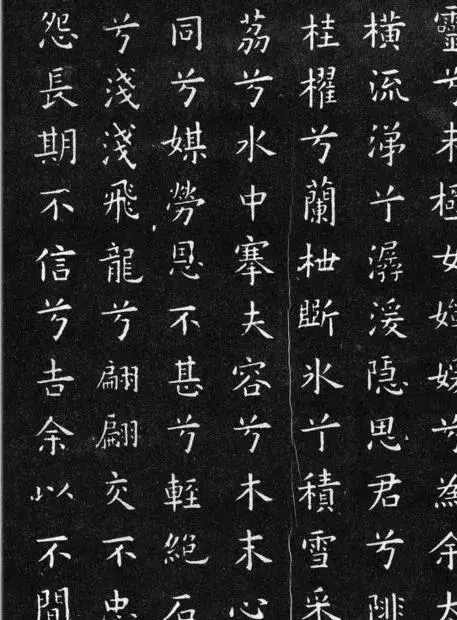 靈兮未極女嬋媛兮為余太
橫流涕兮潺湲隱思君兮陫
桂櫂兮蘭枻斲冰兮積雪采
荔兮水中搴夫容兮木末心
同兮媒勞恩不甚兮輕絕石
兮淺淺飛龍兮翩翩交不忠
怨長期不信兮告余以不間